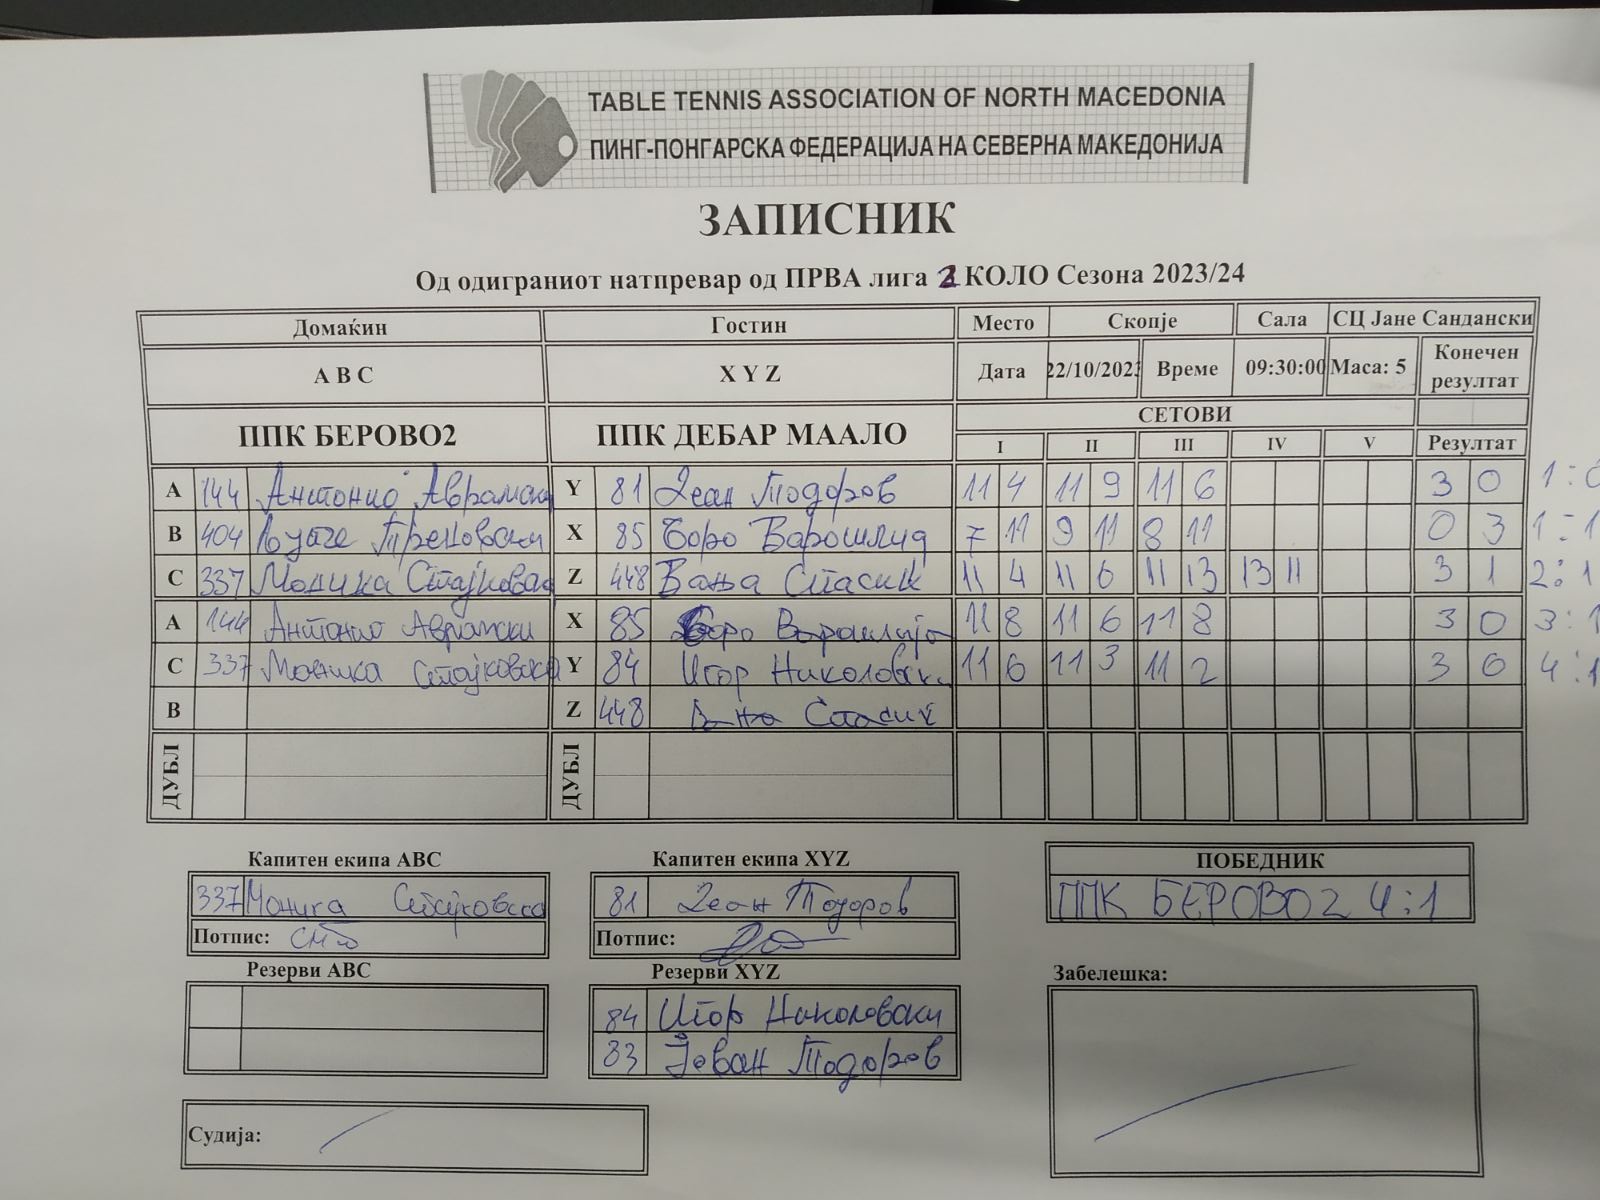 TABLE TENNIS ASSOCIATION OF NORTH MACEDONIA
ПИНГ-ПОНГАРСКА ФЕДЕРАЦИЈА НА СЕВЕРНА МАКЕДОНИЈА
ЗАПИСНИК
Од одиграниот натпревар од ПРВА лига 2 КОЛО Сезона 2023/24
Домаќин Гостин Место Скопје Сала СЦ Јане Сандански
A B C X Y Z Дата 22/10/2023 Време 09:30:00 Маса: 5 Конечен резултат
ППК БЕРОВО2 ППК ДЕБАР МААЛО СЕТОВИ
I II III IV V Резултат
A 144 Антонио Аврамски Y 81 Деан Тодоров 11 4 11 9 11 6 3 0 1:0
B 404 Љупче Треновски X 85 Боро Варошлија 7 11 9 11 8 11 0 3 1:1
C 337 Моника Стојковска Z 448 Вања Стасиќ 11 4 11 6 11 13 13 11 3 1 2:1
A 144 Антонио Аврамски X 85 Боро Варошлија 11 8 11 6 11 8 3 0 3:1
C 337 Моника Стојковска Y 84 Игор Николовски 11 6 11 3 11 2 3 0 4:1
B Z 448 Вања Стасиќ
ДУБЛ ДУБЛ
Капитен екипа ABC Капитен екипа XYZ ПОБЕДНИК
337 Моника Стојковска 81 Деан Тодоров ППК БЕРОВО2 4:1
Потпис: Потпис:
Резерви ABC Резерви XYZ Забелешка:
84 Игор Николовски
83 Јован Тодоров
Судија: